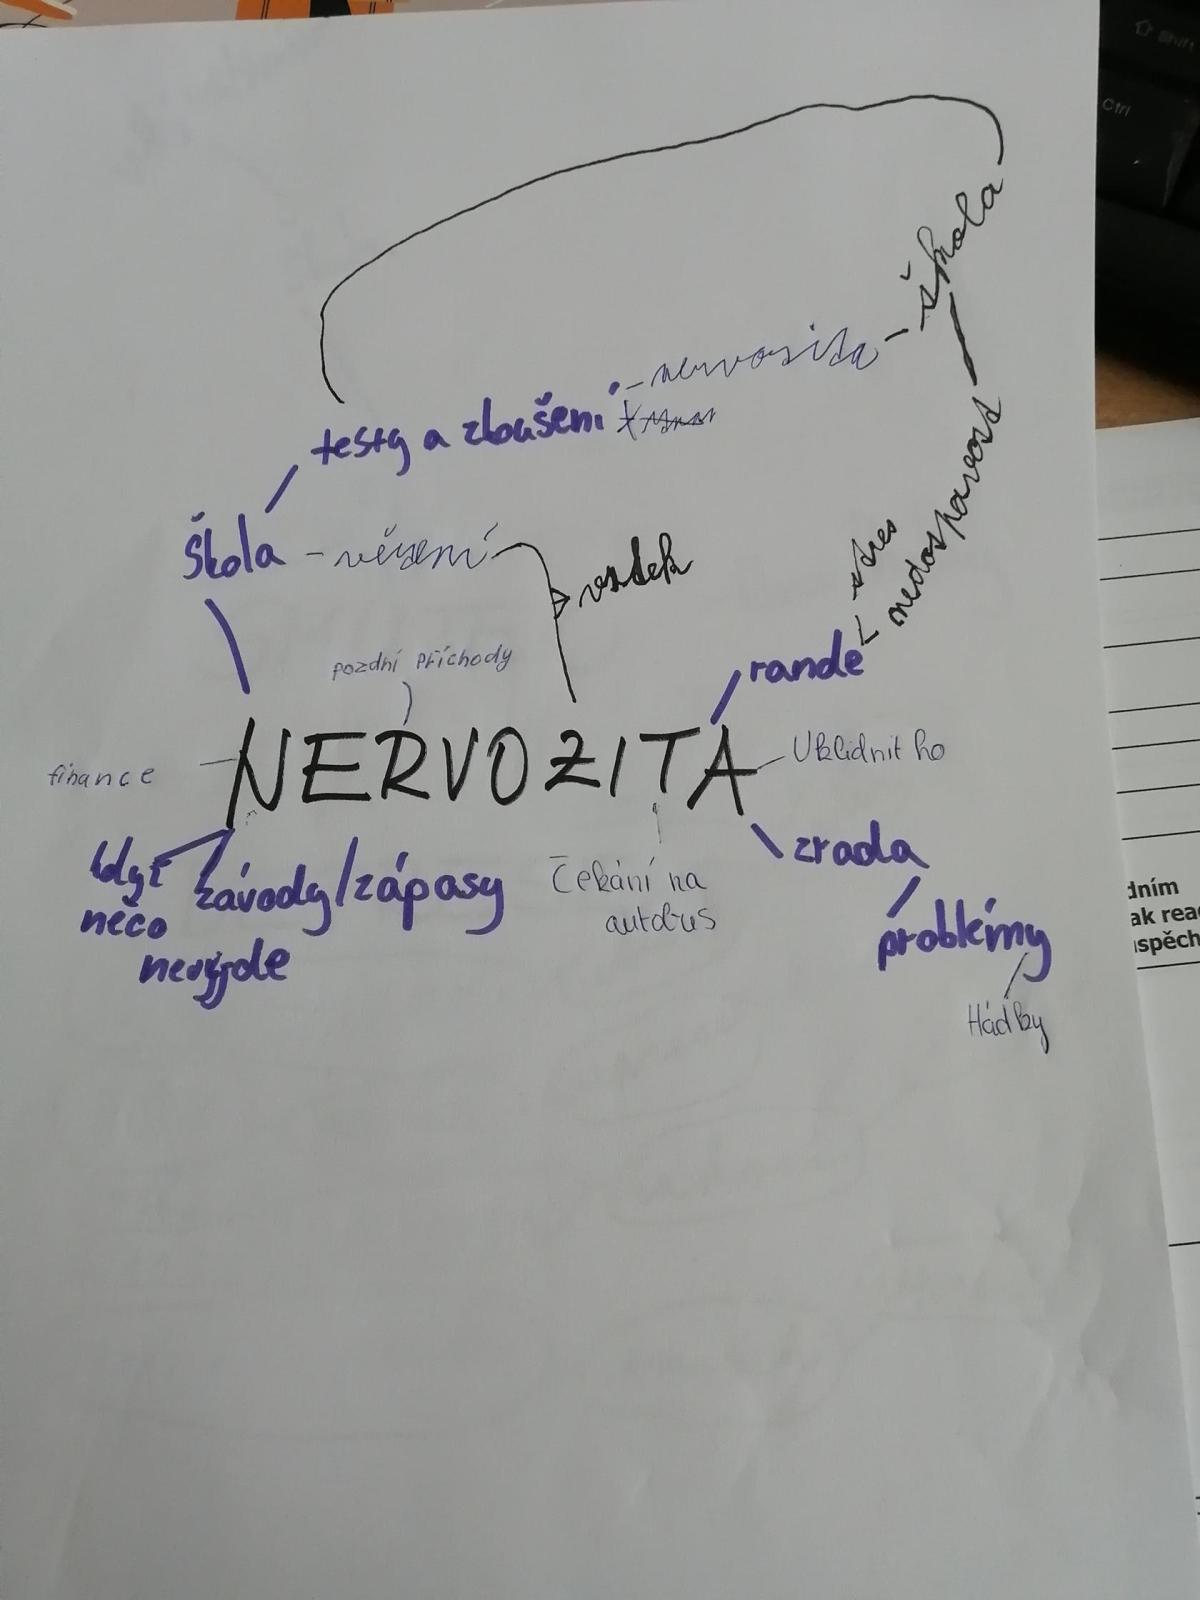 Shift
Ctrl
škola
- nervosita -
testy a zkoušení
nedospavost
stres
Škola - vězení
vztek
pozdní příchody
rande
NERVOZITA
Uklidnit ho
finance
když
něco
nevyjde
závody/zápasy
Čekání na
autobus
zrada
problémy
Hádky
dním
ak rea
spěch